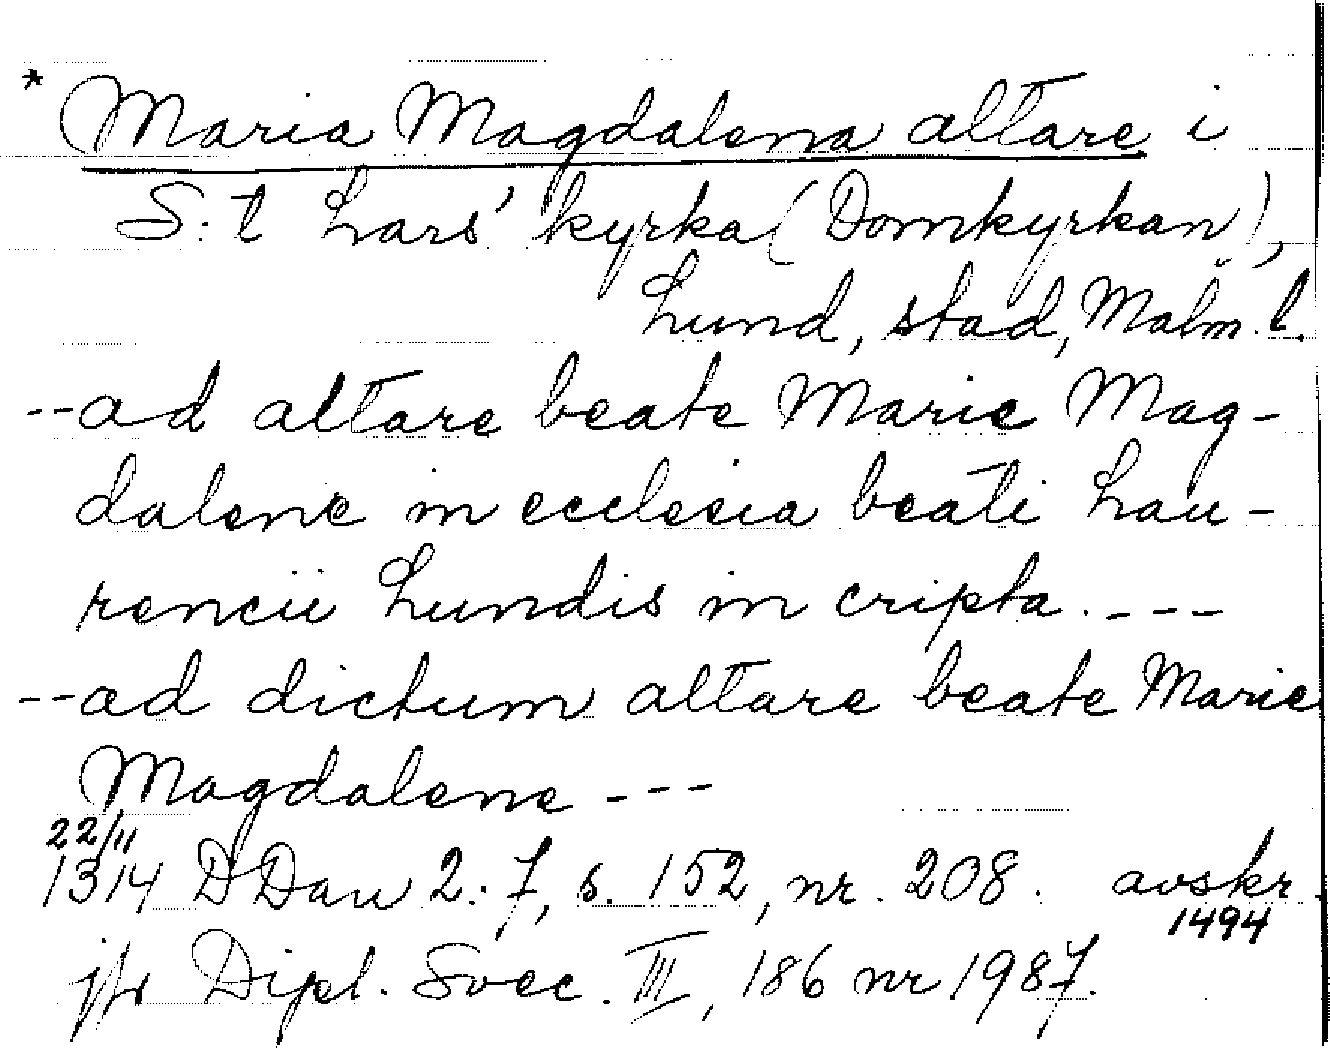 * Maria Magdalena altare i
S:t Lars' kyrka (Domkyrkan),
Lund, stad, Malm. l.
--ad altare beate Marie Mag-
dalene in ecclesia beati Lau-
rencii Lundis in cripta. ---
--ad dictum altare beate Marie
Magdalene ---
22/11
1314 DDan 2. 7, s. 152, nr. 208. avskr.
1494
jfr Dipl. Svec. III, 186 nr 1987.